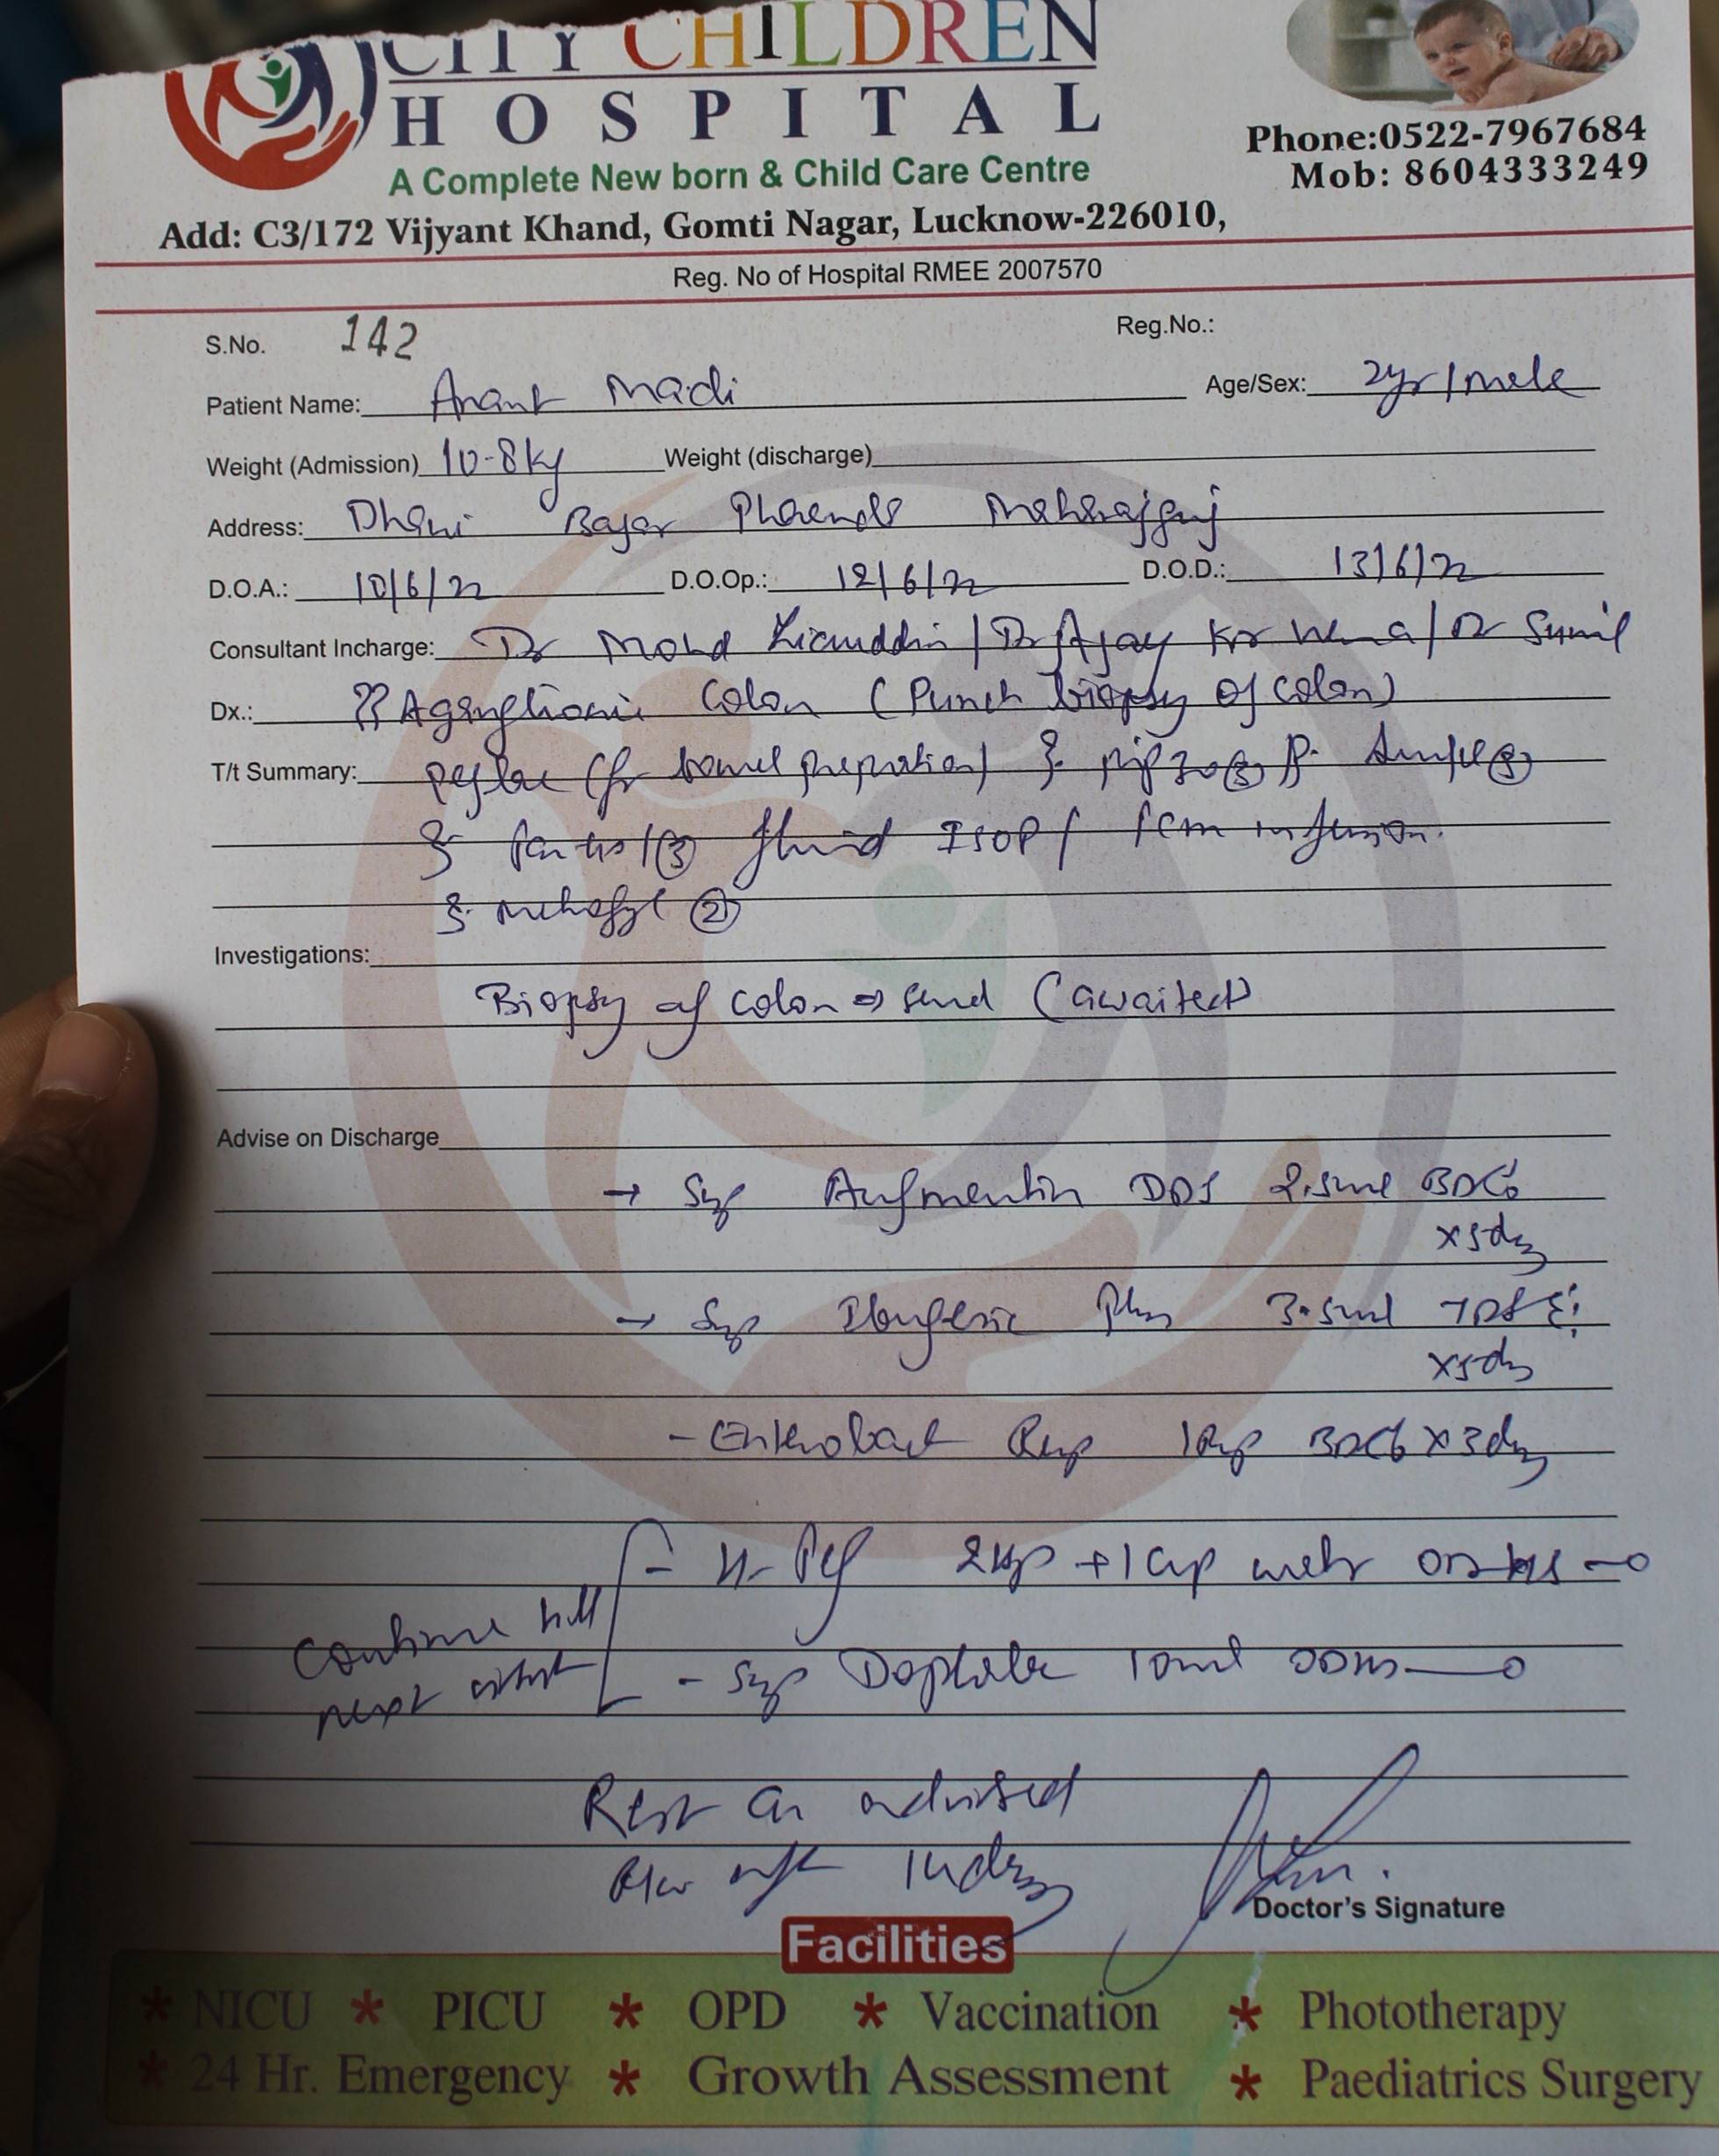 CITY CHILDREN
HOSPITAL
A Complete New born & Child Care Centre
Phone:0522-7967684
Mob: 8604333249
Add: C3/172 Vijyant Khand, Gomti Nagar, Lucknow-226010,
Reg. No of Hospital RMEE 2007570
S.No. 142 Reg.No.:
Patient Name: Anant Madi Age/Sex: 2yr/male
Weight (Admission) 10-8kg Weight (discharge)
Address: Dhani Bajar Maharajganj
D.O.A.: 10/6/22 D.O.Op.: 12/6/22 D.O.D.: 13/6/22
Consultant Incharge: Dr Mohd Ziauddin / Dr Ajay Kr / Dr Sunil
Dx.: ?? Aganglionic Colon (Punch biopsy of colon)
T/t Summary: (for bowel preparation)
fluid ISOP / infusion.
②
Investigations:
Biopsy of colon ⇒ send (awaited)
Advise on Discharge
→ Syp Augmentin DDS 2.5ml BD
x5dy
→ Syp Ibugesic Plus 3.5ml TDS
x5dy
- Enterobact Resp 1Resp x3dy
2tsp + 1 cup
continue till
next visit
- Syp 10ml
Rest as advised
14dy
Doctor's Signature
Facilities
* NICU * PICU * OPD * Vaccination * Phototherapy
* 24 Hr. Emergency * Growth Assessment * Paediatrics Surgery